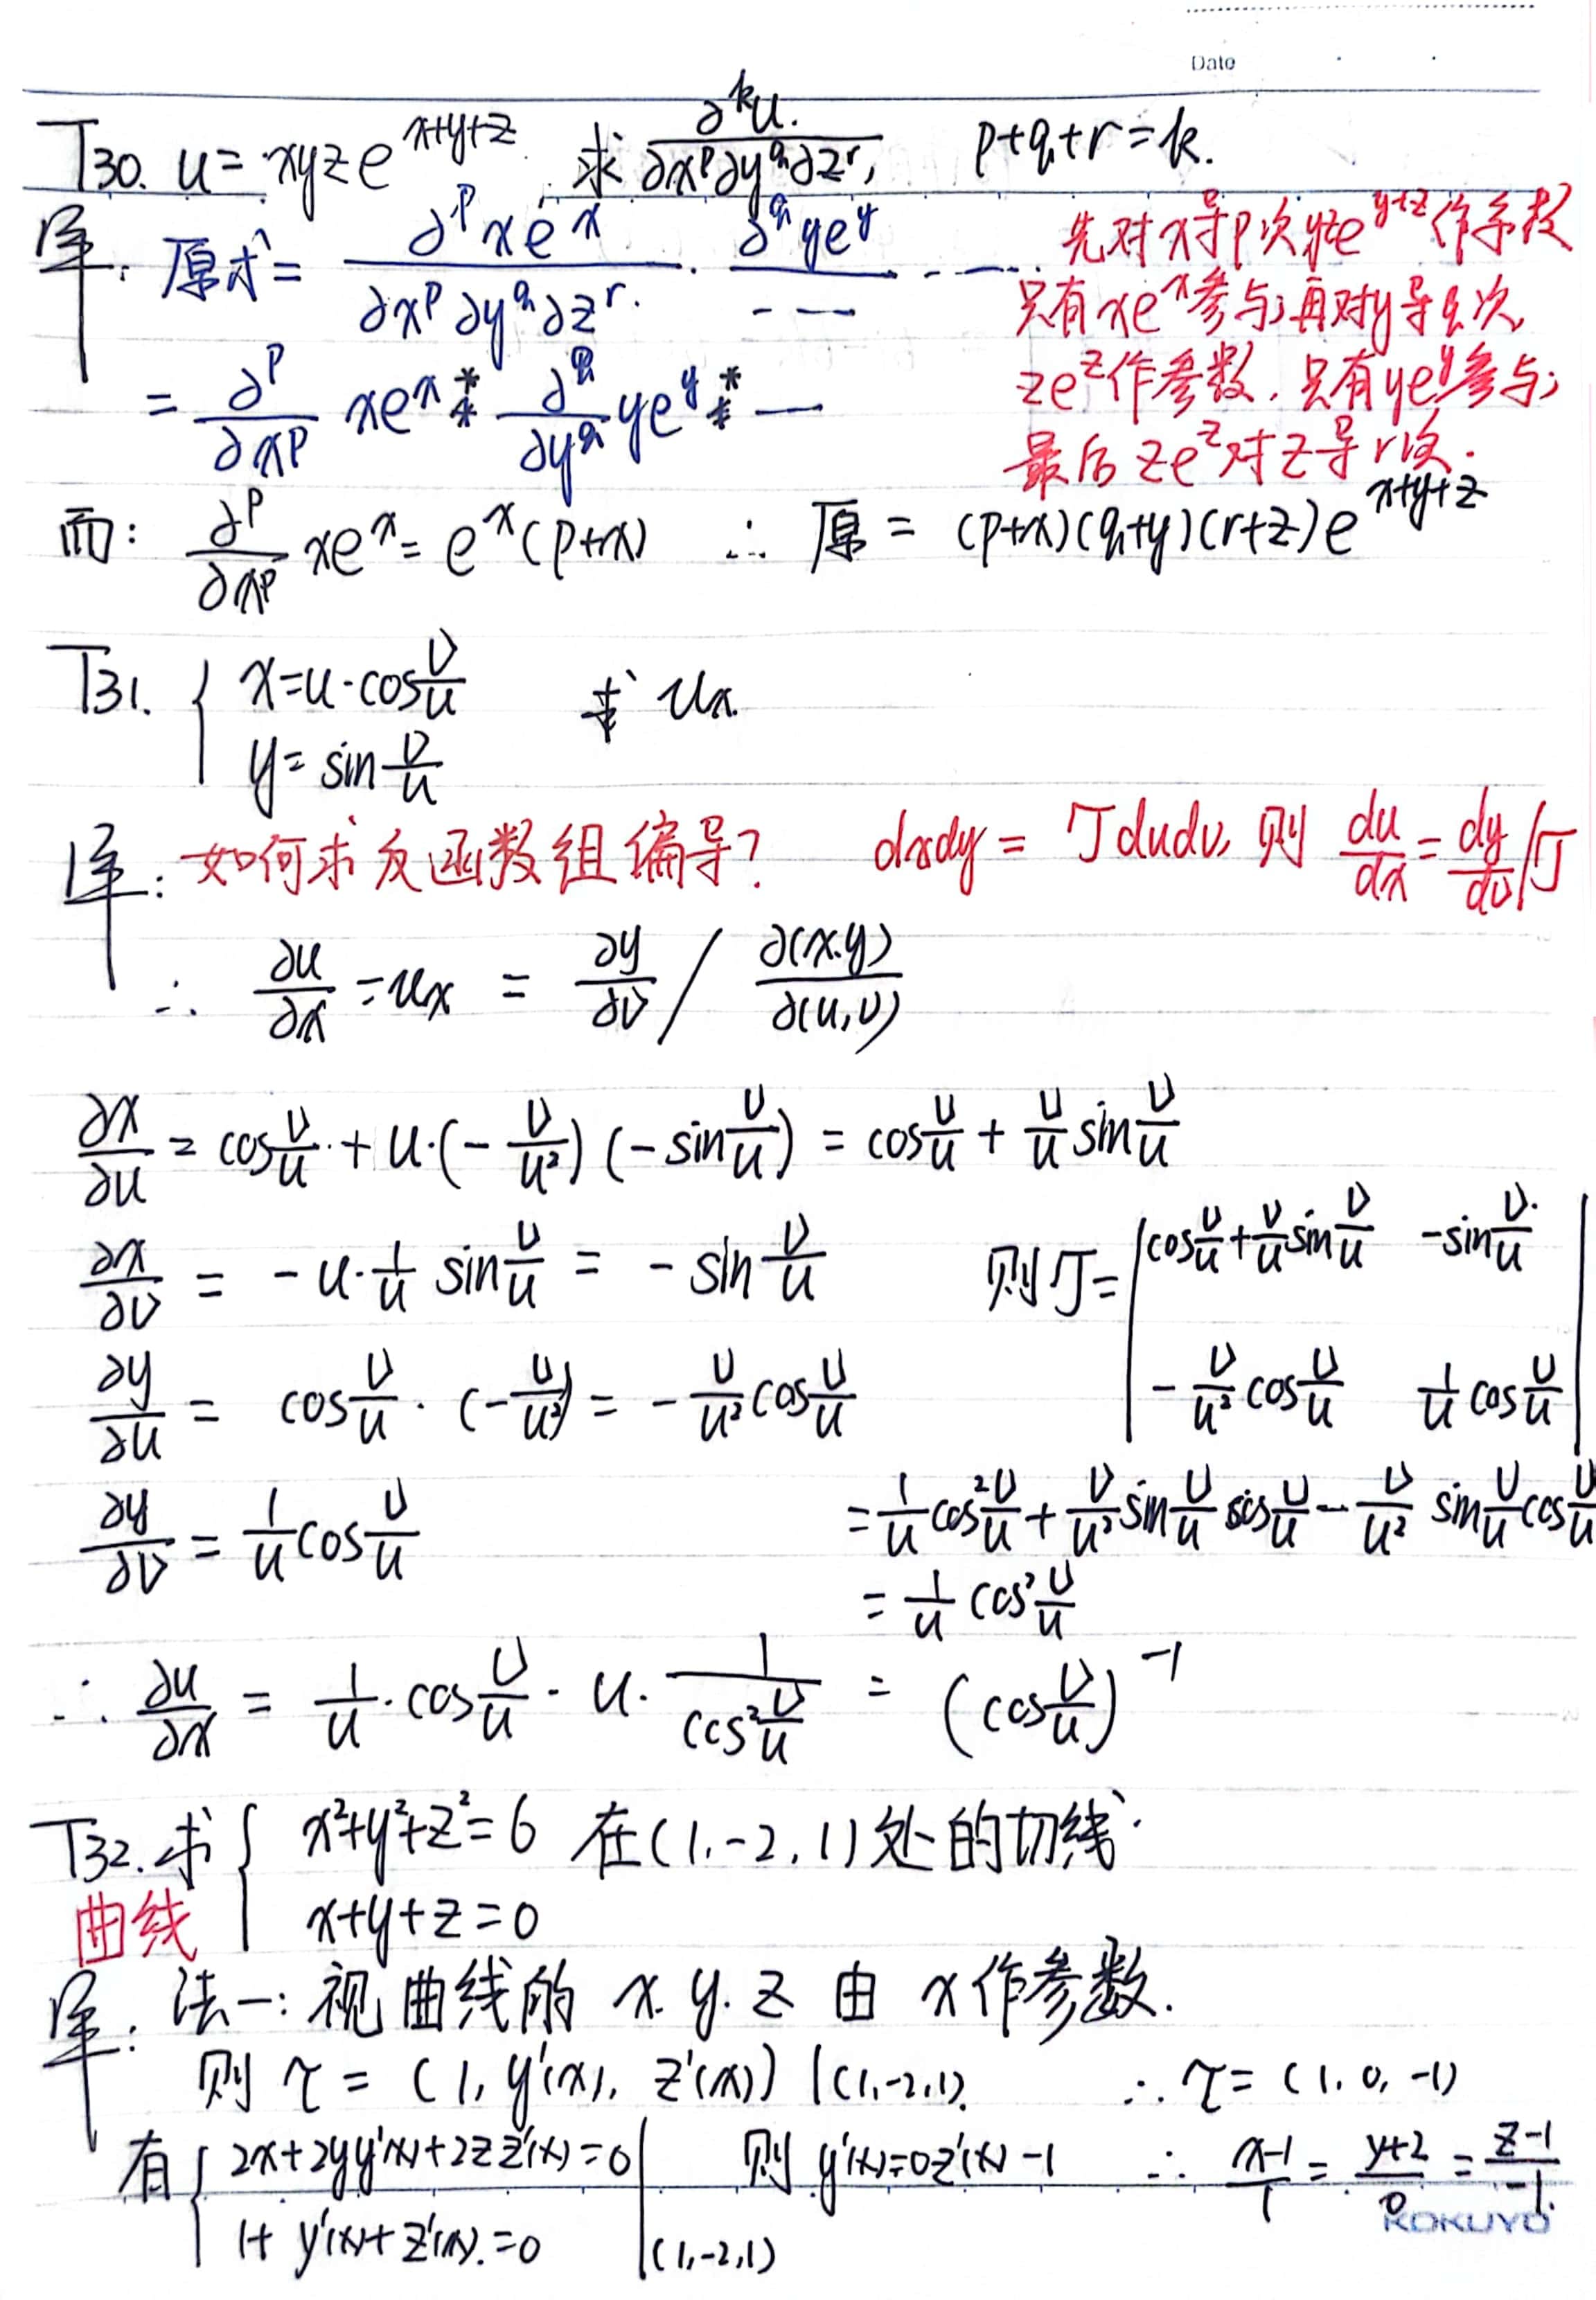 Date
T30. u = xyze^{x+y+z}. 求 ∂^k u / ∂x^p∂y^q∂z^r, p+q+r=k.
解: 原式 = ∂^p xe^x / ∂x^p ∂y^q ∂z^r · ∂^q ye^y / --- · ----
先对x导p次 yze^{y+z}作系数
只有xe^x参与; 再对y导q次,
ze^z作参数, 只有ye^y参与;
最后 ze^z对z导r次.
= ∂^p/∂x^p xe^x * ∂^q/∂y^q ye^y * —
而: ∂^p/∂x^p xe^x = e^x(p+x) ∴ 原 = (p+x)(q+y)(r+z)e^{x+y+z}
T31. { x=u·cos v/u 求 ux.
y= sin v/u
解: 如何求反函数组偏导? dxdy = Jdudv, 则 du/dx = dy/dv /J
∴ ∂u/∂x = ux = ∂y/∂v / ∂(x.y)/∂(u,v)
∂x/∂u = cos v/u + u·(- v/u²) (- sin v/u) = cos v/u + v/u sin v/u
∂x/∂v = - u· 1/u sin v/u = - sin v/u
则 J = | cos v/u + v/u sin v/u   -sin v/u
- v/u² cos v/u   1/u cos v/u |
∂y/∂u = cos v/u · (- v/u²) = - v/u² cos v/u
∂y/∂v = 1/u cos v/u
= 1/u cos² v/u + v/u² sin v/u cos v/u - v/u² sin v/u cos v/u
= 1/u cos² v/u
∴ ∂u/∂x = 1/u · cos v/u · u · 1/cos² v/u = (cos v/u)^{-1}
T32. 求 { x²+y²+z²=6 在(1,-2,1)处的切线.
曲线 x+y+z=0
解: 法一: 视曲线的 x. y. z 由 x作参数.
则 τ = (1, y'(x), z'(x)) |(1,-2,1). ∴ τ = (1, 0, -1)
有 { 2x+2yy'(x)+2zz'(x)=0 | 则 y'(x)=0 z'(x) -1 ∴ x-1/1 = y+2/0 = z-1/-1.
1+ y'(x)+ z'(x).=0 |(1,-2,1)
KOKUYO